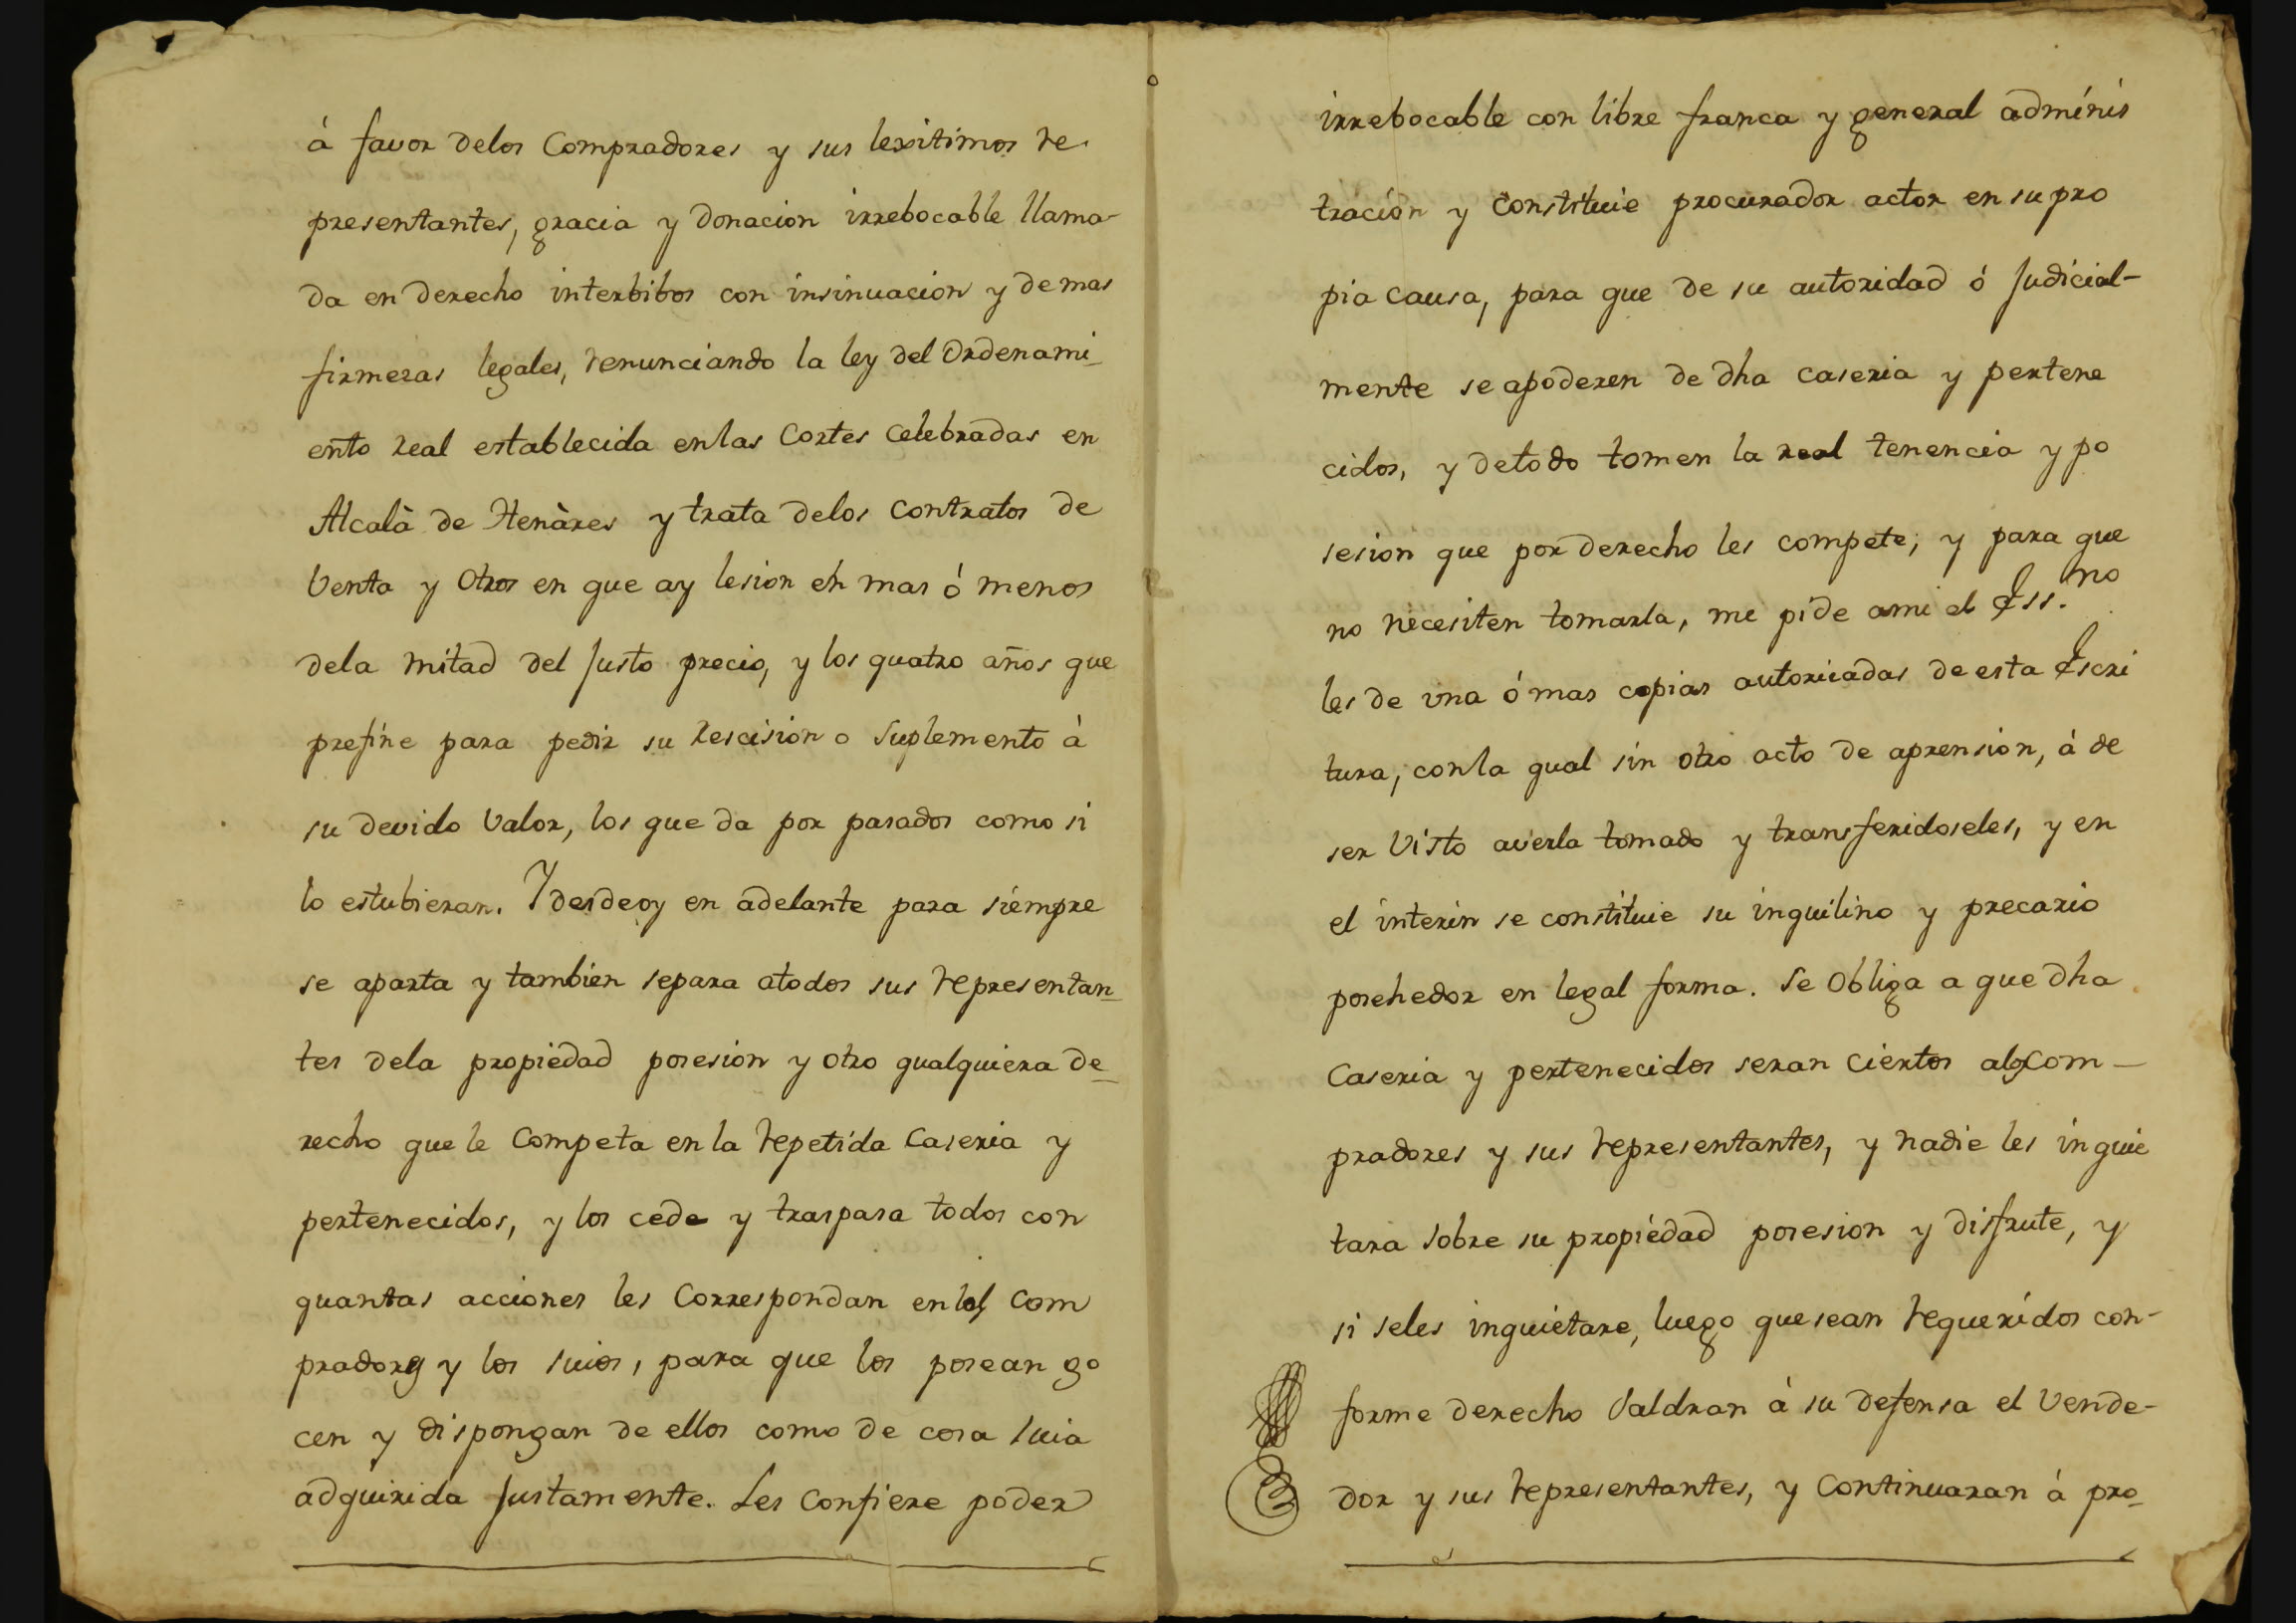 á favor delos Compradores y sus lexitimos re-
presentantes, gracia y donacion irrebocable llama-
da en derecho interbibos con insinuacion y demas
firmezas legales, renunciando la ley del Ordenami-
ento real establecida enlas Cortes Celebradas en
Alcalà de Henàres y trata delos Contratos de
Venta y Otros en que ay lesion en mas ó menos
dela mitad del Justo precio, y los quatro años que
prefine para pedir su rescision o Suplemento à
su devido Valor, los que da por pasados como si
lo estubieran. Y desdeoy en adelante para siempre
se aparta y tambien separa atodos sus representan-
tes dela propiedad posesion y otro qualquiera de-
recho que le Competa en la repetida Caseria y
pertenecidos, y los cede y traspasa todos con
quantas acciones les Correspondan en los Com
pradores y los suios, para que los posean go
cen y dispongan de ellos como de cosa suia
adquirida Justamente. Les Confiere poder
irrebocable con libre franca y general adminis
tración y Constituie procurador actor en su pro
pia Causa, para que de su autoridad ó Judicial-
mente se apoderen de dha caseria y pertene
cidos, y detodo tomen la real tenencia y po
sesion que por derecho les compete; y para que
no necesiten tomarla, me pide ami el Ess.no
les de vna ó mas copias autorizadas de esta Escri
tura, con la qual sin otro acto de aprension, á de
ser Visto averla tomado y transferidoseles, y en
el interin se constituie su inquilino y precario
posehedor en legal forma. Se Obliga a que dha
Caseria y pertenecidos seran Ciertos alos Com-
pradores y sus representantes, y nadie les inquie
tara sobre su propiedad posesion y disfrute, y
si seles inquietare, luego que sean requeridos con-
forme derecho Saldran á su defensa el Vende-
dor y sus representantes, y Continuaran á pro-